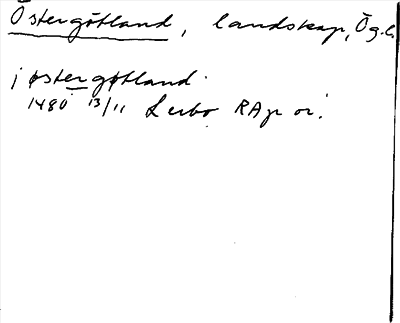 Östergötland, landskap, Ög.l.
j østergøtland
1480 13/11 Lerbo RAp or.